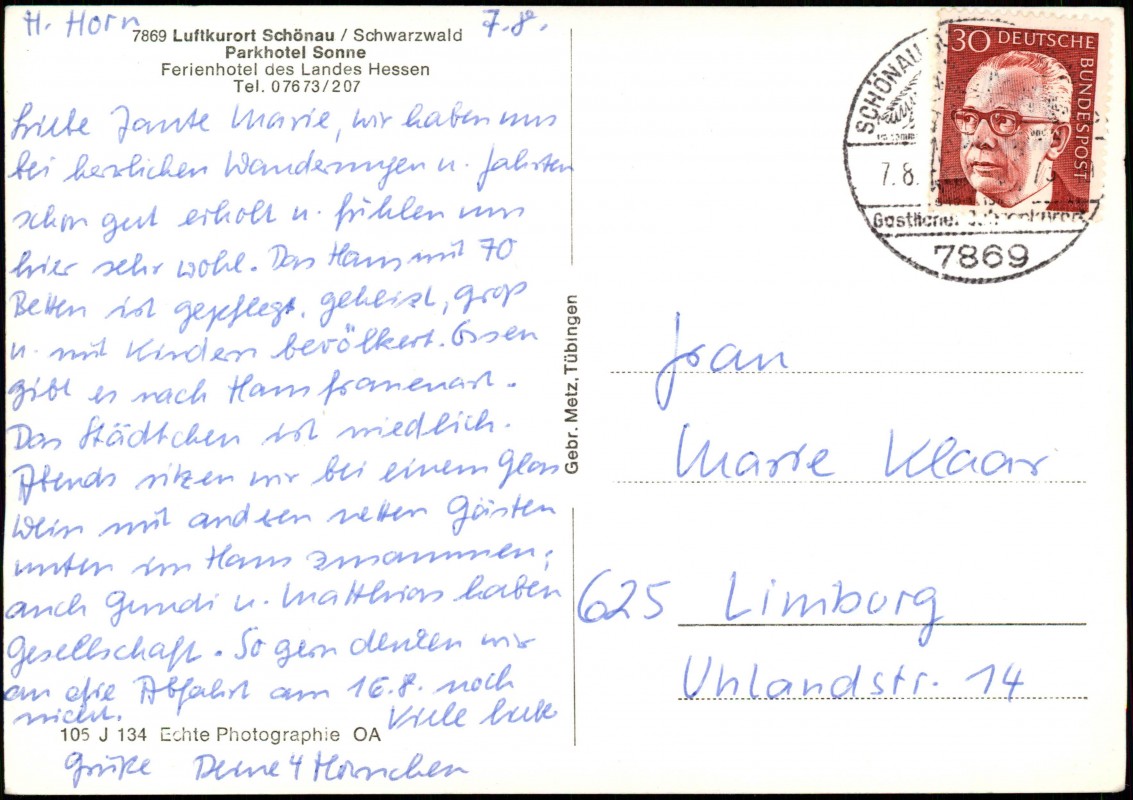 H. Horn 7.8.
7869 Luftkurort Schönau / Schwarzwald
Parkhotel Sonne
Ferienhotel des Landes Hessen
Tel. 07673/207
Liebe Tante Marie, wir haben uns
bei herrlichen Wanderungen u. Fahrten
schon gut erholt u. fühlen uns
hier sehr wohl. Das Haus mit 70
Betten ist gepflegt, geheizt, groß
u. mit Kindern bevölkert. Essen
gibt es nach Hausfrauenart.
Das Städtchen ist niedlich.
Abends sitzen wir bei einem Glas
Wein mit anderen netten Gästen
unten im Haus zusammen,
auch Gundi u. Matthias haben
Gesellschaft. So gern denken wir
an die Abfahrt am 16.8. noch
nicht. Viele liebe
105 J 134 Echte Photographie OA
Grüße Deine 4 Hörnchen
Gebr. Metz, Tübingen
30 DEUTSCHE BUNDESPOST
SCHÖNAU
7.8.
7869
Frau
Marie Klaar
625 Limburg
Uhlandstr. 14